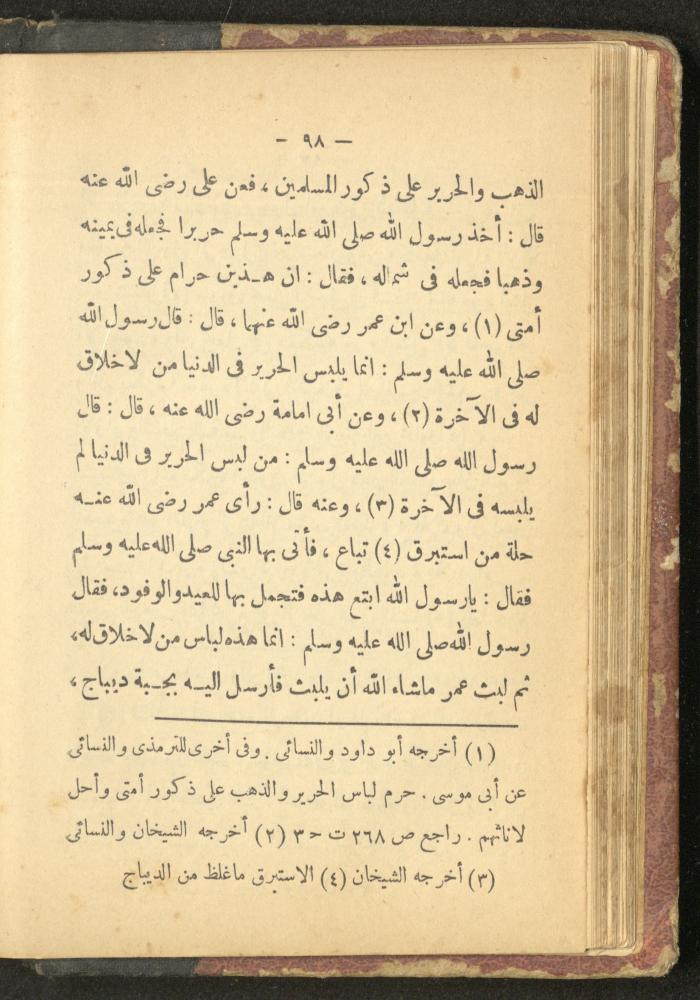 — ٩٨ —
الذهب والحرير على ذكور المسلمين ، فعن على رضى الله عنه
قال : أخذ رسول الله صلى الله عليه وسلم حريرا فجعله فى يمينه
وذهبا فجعله فى شماله ، فقال : ان هـذين حرام على ذكور
أمتى (١) ، وعن ابن عمر رضى الله عنهما ، قال : قال رسول الله
صلى الله عليه وسلم : انما يلبس الحرير فى الدنيا من لاخلاق
له فى الآخرة (٢) ، وعن أبى امامة رضى الله عنه ، قال : قال
رسول الله صلى الله عليه وسلم : من لبس الحرير فى الدنيا لم
يلبسه فى الآخرة (٣) ، وعنه قال : رأى عمر رضى الله عنـه
حلة من استبرق (٤) تباع ، فأتى بها النبى صلى الله عليه وسلم
فقال : يارسول الله ابتع هذه فتجمل بها للعيد والوفود، فقال
رسول الله صلى الله عليه وسلم : انما هذه لباس من لاخلاق له،
ثم لبث عمر ماشاء الله أن يلبث فأرسل اليـه بجـبة ديباج ،
(١) أخرجه أبو داود والنسائى . وفى أخرى للترمذى والنسائى
عن أبى موسى . حرم لباس الحرير والذهب على ذكور أمتى وأحل
لاناثهم . راجع ص ٢٦٨ ت ح ٣ (٢) أخرجه الشيخان والنسائى
(٣) أخرجه الشيخان (٤) الاستبرق ماغلظ من الديباج